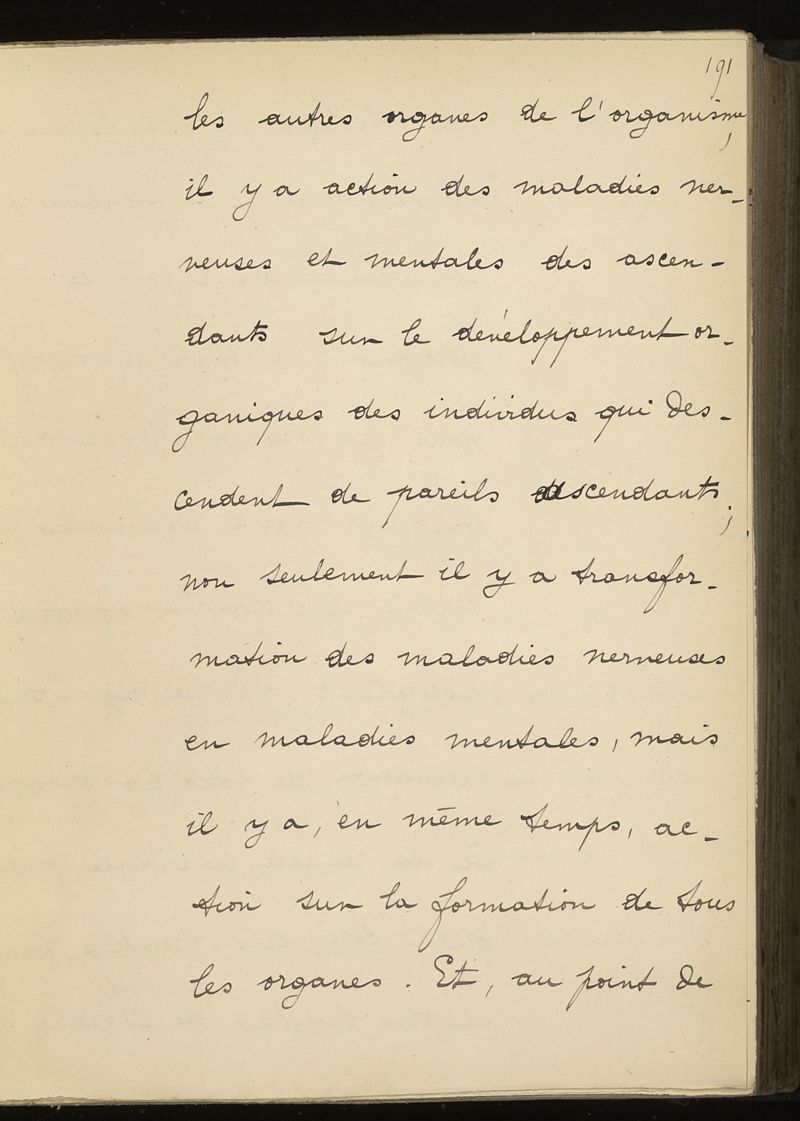 191
les autres organes de l'organisme,
il y a action des maladies ner-
veuses et mentales des ascen-
dants sur le développement or-
ganiques des individus qui des-
cendent de pareils ascendants;
non seulement il y a transfor-
mation des maladies nerveuses
en maladies mentales, mais
il y a, en même temps, ac-
tion sur la formation de tous
les organes. Et, au point de